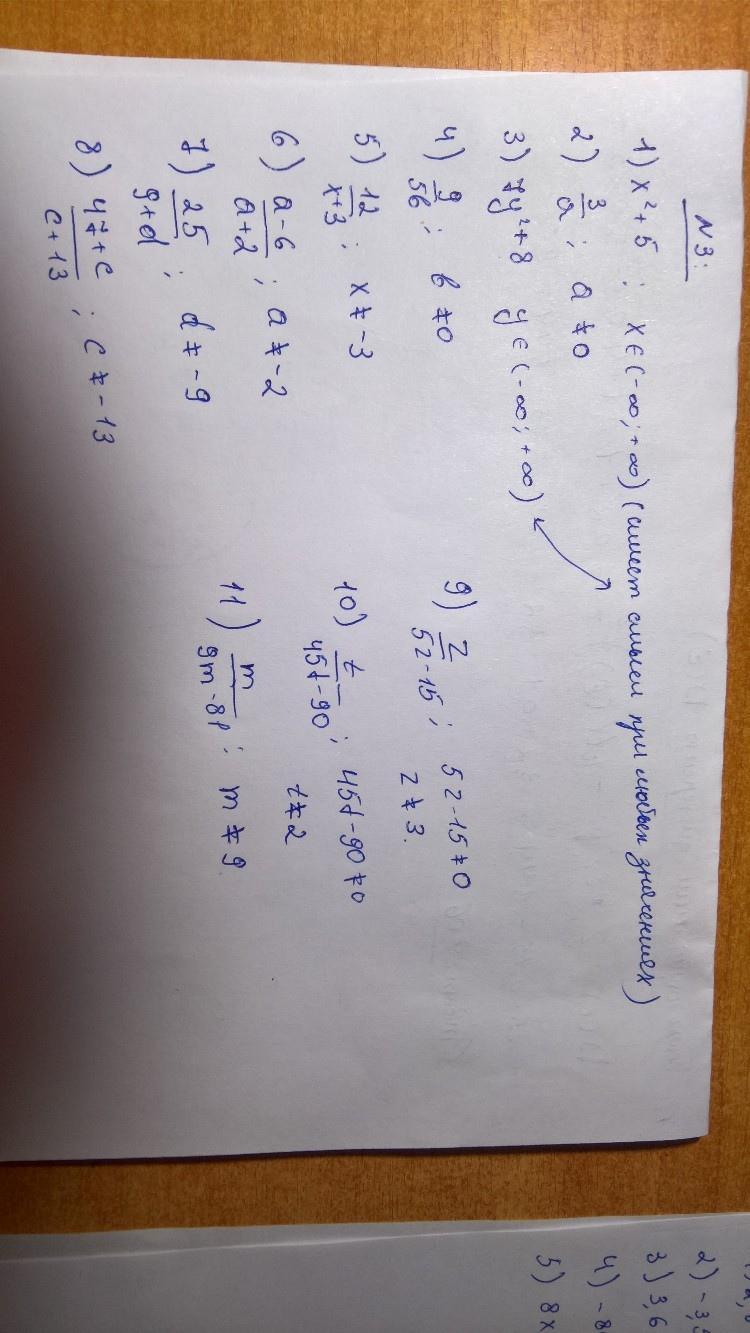 N3:
1) x²+5 ; x∈(-∞;+∞) (имеет смысл при любых значениях)
2) 3/a ; a≠0
3) 7y²+8 y∈(-∞;+∞)
4) 9/5б ; б≠0
5) 12/x+3 ; x≠-3
6) a-6/a+2 ; a≠-2
7) 25/9+d ; d≠-9
8) 47+c/c+13 ; c≠-13
9) z/5z-15 ; 5z-15≠0
z≠3.
10) t/45t-90 ; 45t-90≠0
t≠2
11) m/9m-81 ; m≠9
2) -3,
3) 3,6
4) -8
5) 8x